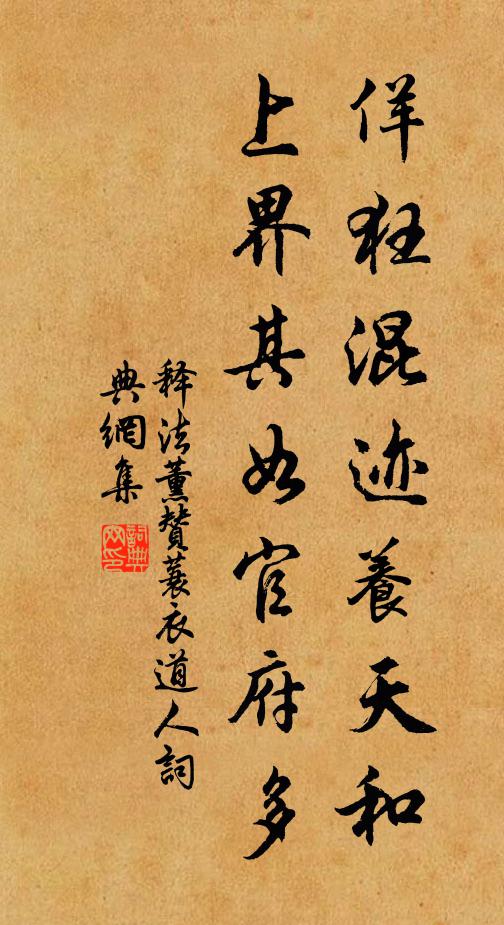 佯狂混迹養天和
上界其如官府多
釋法薰賛蓑衣道人詞
典網集
詞典網印